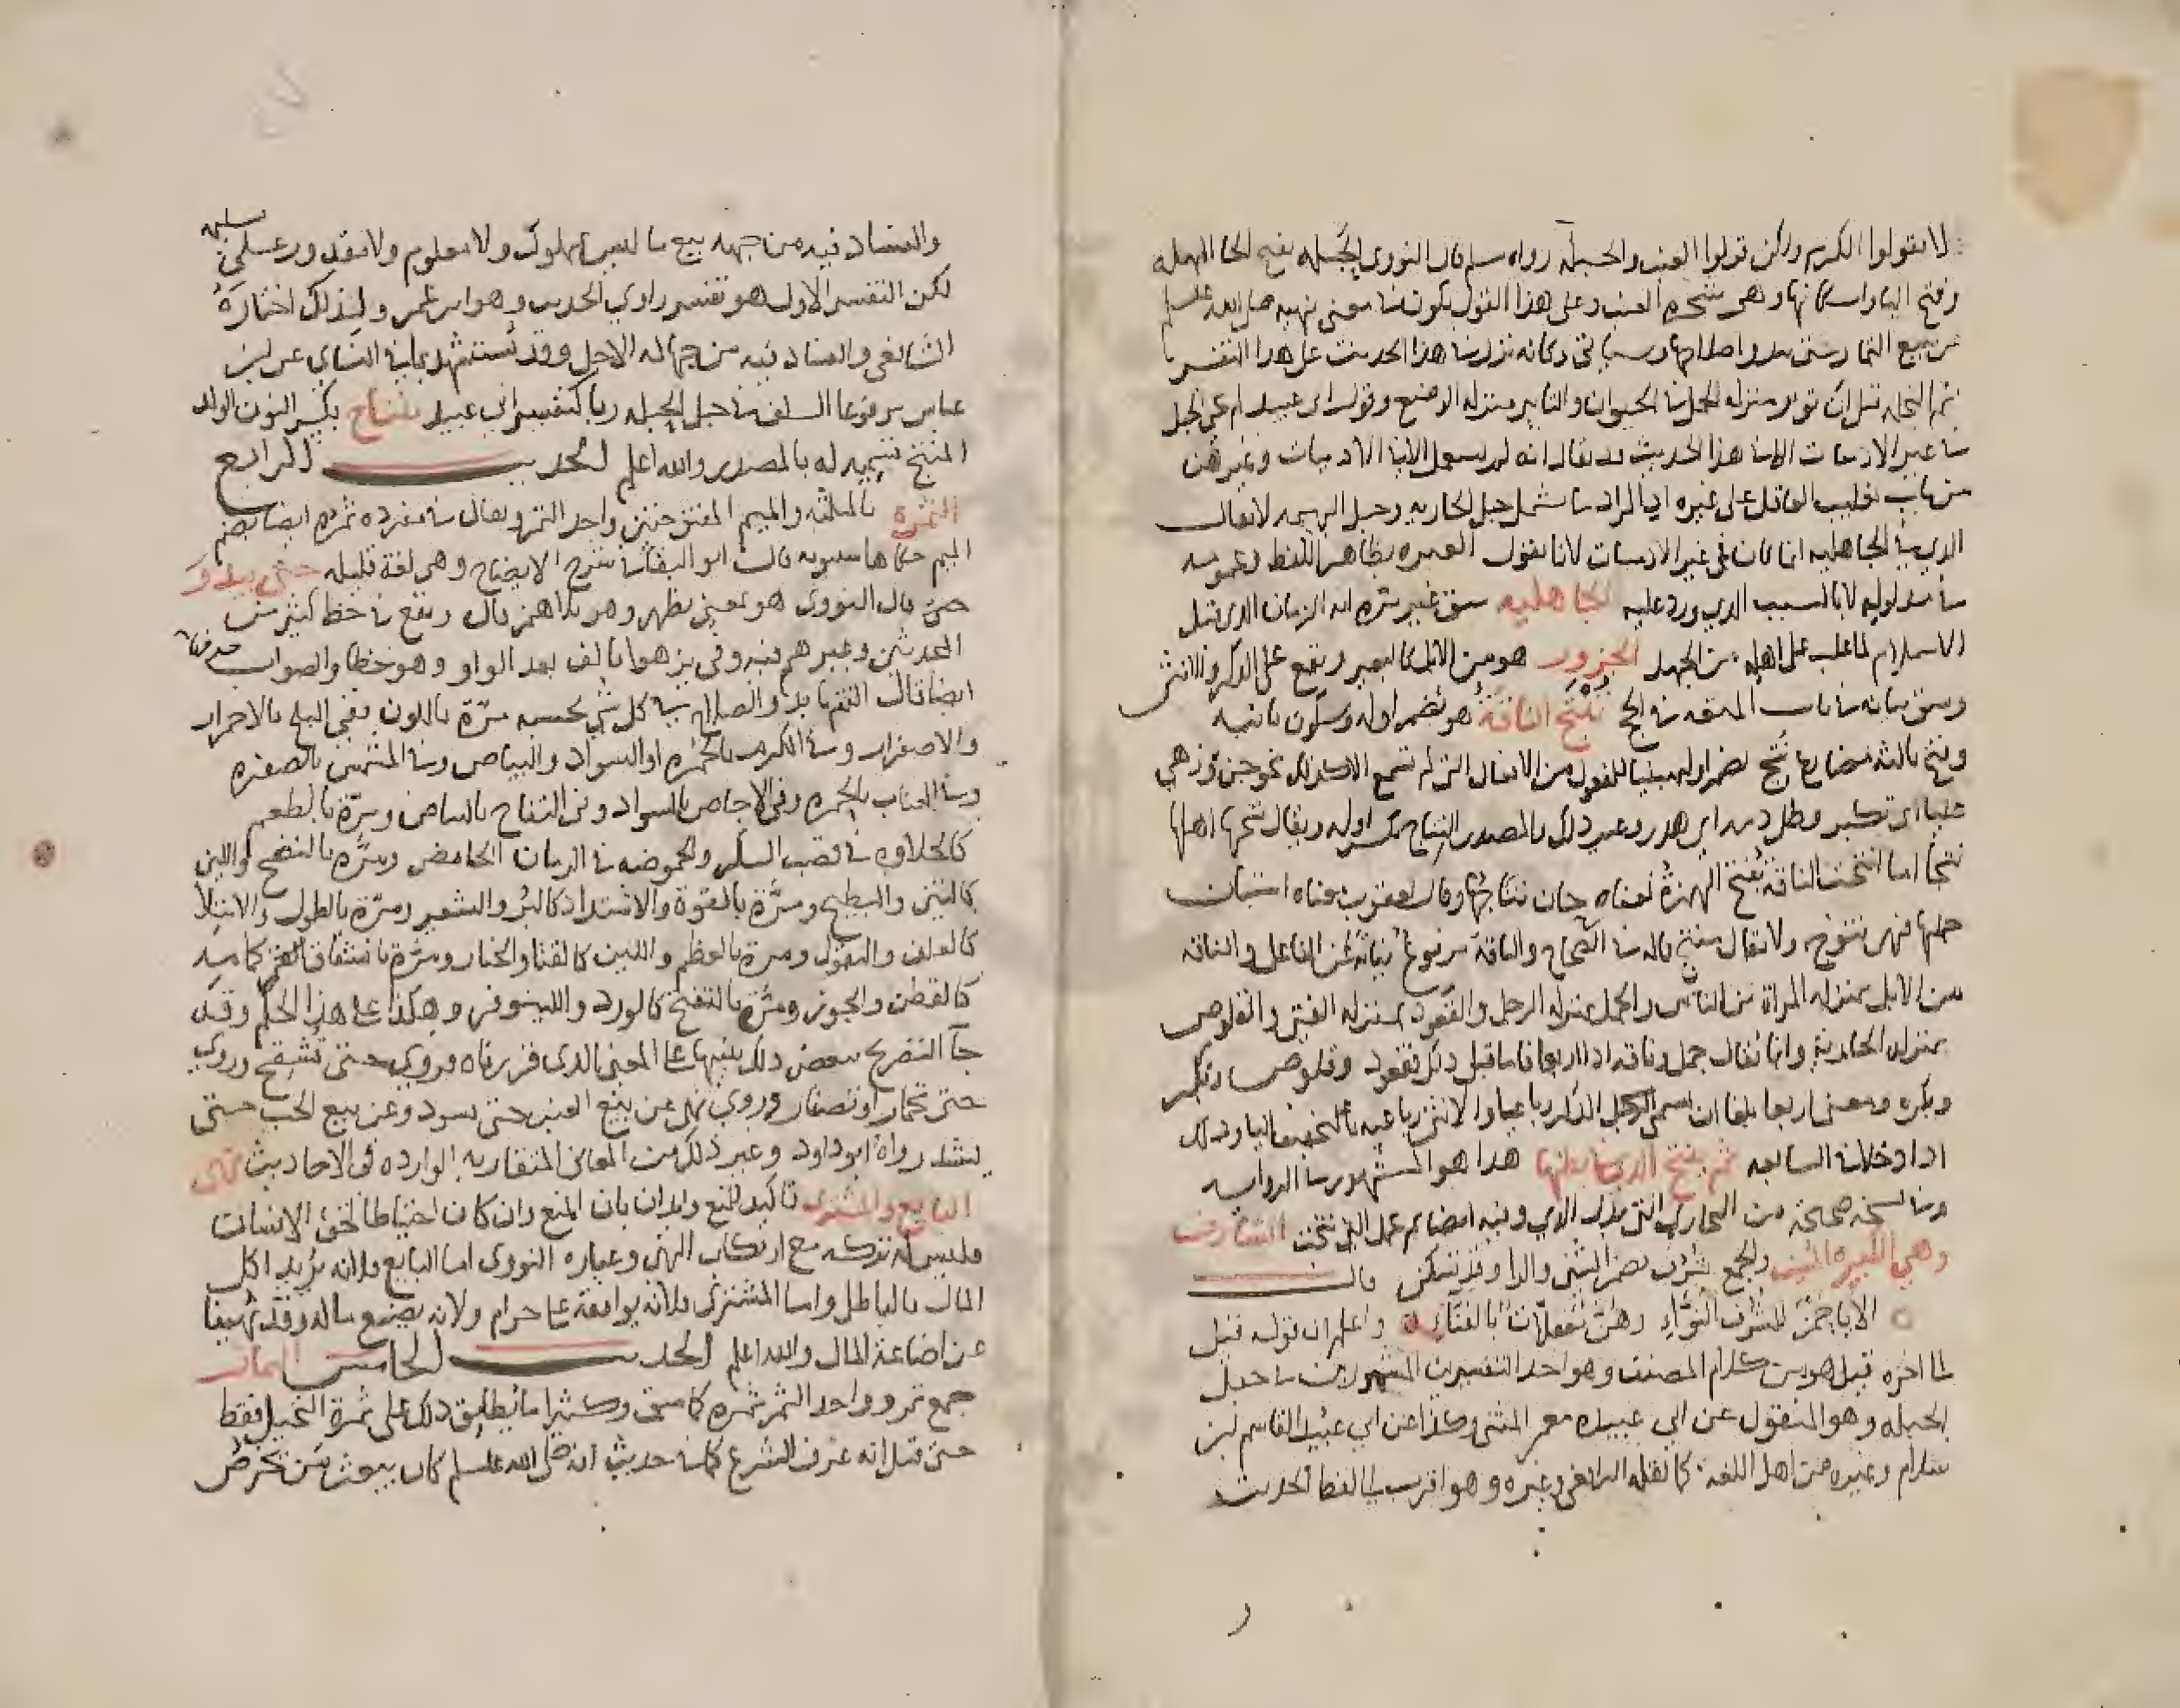 لا تقولوا الكرم ولكن قولوا العنب والحبلة رواه مسلم قال النووي الحبلة بفتح الحا المهملة
وفتح الباء واسكانها وهي شجرة العنب وعلى هذا القول يكون معنى نهيه صلى الله عليه وسلم
عن بيع الثمار حتى يبدو اصلاحها وسياتي وكانه نزل هذا الحديث على هذا التفسير
ثمرة النخلة قبل ان تؤبر منزلة الحمل في الحيوان والتابير منزلة الوضع وقول ابي عبيد لم يجي الحبل
في غير الادميات الا في هذا الحديث قد يقال انه لم يستعمل الا في الادميات وغيرهن
من باب تغليب العاقل على غيره اي المراد ما يشمل حبل الجارية وحبل البهيمة لا يقال
الذي في الجاهلية انما كان في غير الادميات لانا نقول العبرة بظاهر اللفظ وعمومه
في مدلوله لا بالسبب الذي ورد عليه الجاهلية سبق غير مرة انه الزمان الذي قبل
الاسلام لما غلب على اهله من الجهل الجزور هو من الابل كالبعير ويقع على الذكر والانثى
وسبق بيانه في باب المتعة في الحج تُنْتَج الناقة هو بضم اوله وسكون ثانيه
وفتح ثالثه مضارع نُتج بضم اوله مبنيا للمفعول من الافعال التي لم تسمع الا كذلك نحو جن وزهي
علينا اي تكبر وطل دمه اي هدر وغير ذلك والمصدر النتاج بكسر اوله ويقال نتجها اهلها
نتجا اما انتجت الناقة بفتح الهمزة فمعناه حان نتاجها وقال يعقوب معناه استبان
حملها فهي نتوج ولا يقال منتج قاله في الصحاح والناقة مرفوع نيابة عن الفاعل والناقة
من الابل بمنزلة المراة من الناس والجمل بمنزلة الرجل والقعود بمنزلة الفتى والقلوص
بمنزلة الجارية وانما يقال جمل وناقة اذا اربعا فاما قبل ذلك فقعود وقلوص وبكر
وبكرة ومعنى اربعا بلغا ان يسمى الرجل الذكر رباعيا والانثى رباعية بالتخفيف الياء وذلك
اذا دخلا في السابعة ثم تنتج التي في بطنها هذا هو المشهور في الرواية
وفي نسخة صحيحة من البخاري التي بدل الذي وفيه ايضا ثم تحمل التي نتجت الشارف
وهي الكبيرة المسنة والجمع شُرُف بضم الشين والرا وقد تسكن قال
الا يا حمز للشرف النواء وهن معقلات بالفناء واعلم ان قوله قيل
الى اخره قيل هو من كلام المصنف وهو احد التفسيرين المشهورين في حبل
الحبلة وهو المنقول عن ابي عبيدة معمر المثنى وكذا عن ابي عبيد القاسم بن
سلام وغيره من اهل اللغة كما نقله الرافعي وغيره وهو اقرب الى لفظ الحديث
والفساد فيه من جهة بيع ما ليس بمملوك ولا معلوم ولا مقدور على تسليمه
لكن التفسير الاول هو تفسير راوي الحديث وهو ابن عمر ولذلك اختاره
الشافعي والفساد فيه من جهالة الاجل وقد يستشهد بما في النساي عن ابن
عباس مرفوعا السلف في حبل الحبلة ربا كتفسير ابي عبيد نتاج بكسر النون الولد
المنتج تسمية له بالمصدر والله اعلم الحديث الرابع
الثمرة بالمثلثة والميم المفتوحتين واحد الثمر ويقال في مفرده ثمره ايضا بضم
الميم حكاها سيبويه قال ابو البقا في شرح الايضاح وهي لغة قليلة حتى يبدو
حتى قال النووي هو بمعنى يظهر وهو بلا همز قال ويقع في خط كثير من
المحدثين وغيرهم فيه وفي يزهوا بالف بعد الواو وهو خطا والصواب حذفها
ايضا قال ثم بدو الصلاح في كل شي بحسبه مرّة باللون ففي البلح بالاحمرار
والاصفرار وفي الكرم بالحمرة او السواد والبياض وفي المشمش بالصفرة
وفي العناب بالحمرة وفي الاجاص بالسواد وفي التفاح بالبياض ومرّة بالطعم
كالحلاوة في قصب السكر والحموضة في الرمان الحامض ومرّة بالنضج واللين
كالتين والبطيخ ومرّة بالقوة والاشتداد كالبر والشعير ومرّة بالطول والامتلا
كالعلف والبقول ومرة بالعظم واللين كالقثا والخيار ومرّة بانشقاق كمامه
كالقطن والجوز ومرّة بالتفتح كالورد واللينوفر وهكذا على هذا الحكم وقد
جآ التصريح ببعض ذلك تنبيها على المعنى الذي قررناه وروي حتى تشقح وروي
حتى تحمار او تصفار وروي نهى عن بيع العنب حتى يسود وعن بيع الحب حتى
يشتد رواه ابو داود وغير ذلك من المعاني المتقاربة الواردة في الاحاديث نهى
البايع والمشتري تاكيد للمنع وايذان بان المنع وان كان احتياطا لحق الانسان
فليس له تركه مع ارتكاب النهي وعبارة النووي اما البايع فلانه يريد اكل
المال بالباطل واما المشتري فلانه يوافقه على حرام ولانه يضيع ماله وقد نهينا
عن اضاعة المال والله اعلم الحديث الخامس الثمار
جمع ثمر وواحد الثمر ثمرة كما سبق وكثيرا ما يطلق ذلك على ثمرة النخيل فقط
حتى قيل انه عرف الشرع كما في حديث انه صلى الله عليه وسلم كان يبعث من يخرص